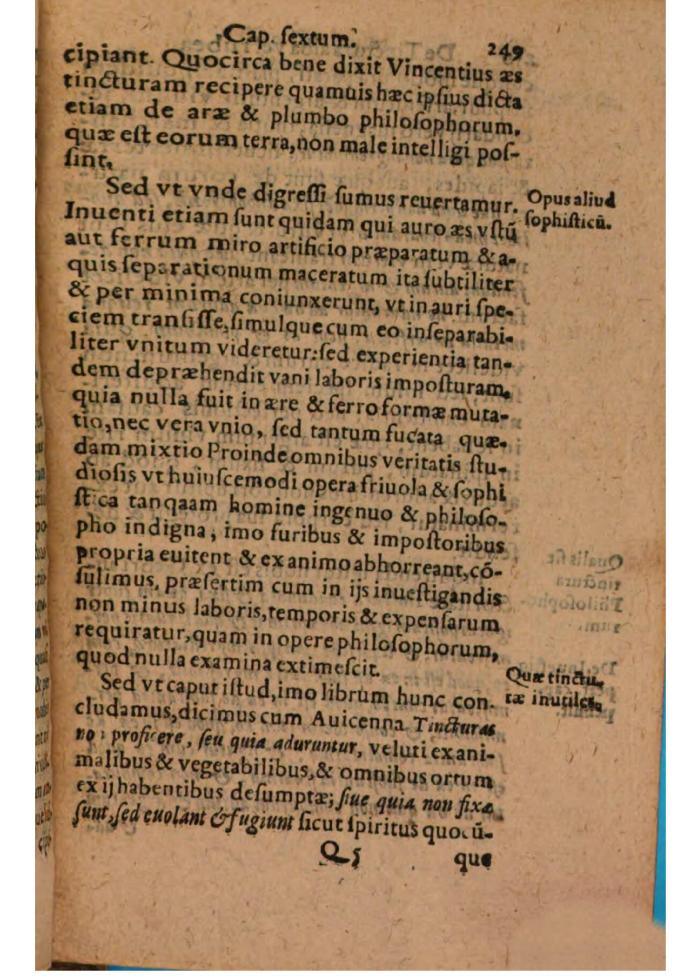 Cap. ſextum. 249
cipiant. Quocirca bene dixit Vincentius æs
tincturam recipere quamuis hæc ipſius dicta
etiam de aræ & plumbo philoſophorum,
quæ eſt eorum terra, non male intelligi poſ-
ſint.
Sed vt vnde digreſſi ſumus reuertamur.
Opus aliud
ſophiſticū.
Inuenti etiam ſunt quidam qui auro æs vſtū
aut ferrum miro artificio præparatum & a-
quis ſeparationum maceratum ita ſubtiliter
& per minima coniunxerunt, vt in auri ſpe-
ciem tranſiſſe, ſimulque cum eo inſeparabi-
liter vnitum videretur: ſed experientia tan-
dem depræhendit vani laboris impoſturam,
quia nulla fuit in ære & ferro formæ muta-
tio, nec vera vnio, ſed tantum fucata quæ-
dam mixtio Proinde omnibus veritatis ſtu-
dioſis vt huiuſcemodi opera friuola & ſophi
ſtica tanqaam homine ingenuo & philoſo-
pho indigna, imo furibus & impoſtoribus
propria euitent & ex animo abhorreant, cō-
ſulimus, præſertim cum in ijs inueſtigandis
non minus laboris, temporis & expenſarum
requiratur, quam in opere philoſophorum,
quod nulla examina extimeſcit.
Quæ tinctu-
ræ inutiles.
Sed vt caput iſtud, imo librum hunc con-
cludamus, dicimus cum Auicenna Tincturas
no: proficere, ſeu quia aduruntur, veluti ex ani-
malibus & vegetabilibus, & omnibus ortum
ex ij habentibus deſumptæ; ſiue quia non fixæ
ſunt, ſed euolant & fugiunt ſicut ſpiritus quocū-
Q 5 que